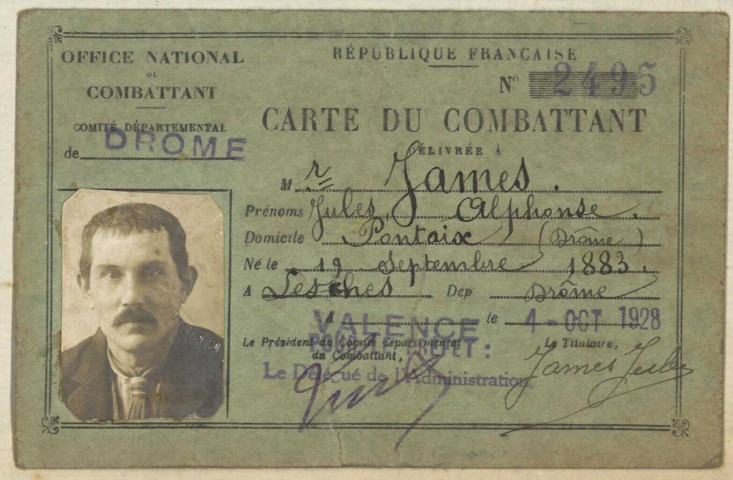 OFFICE NATIONAL
DU
COMBATTANT
COMITÉ DÉPARTEMENTAL
de DROME
RÉPUBLIQUE FRANÇAISE
N° 2495
CARTE DU COMBATTANT
DÉLIVRÉE À
M r James.
Prénoms Jules, Alphonse.
Domicile Pontaix (Drôme)
Né le 19 Septembre 1883.
A Lesches Dep Drôme
A VALENCE le 4 - OCT 1928
Le Président du Comité départemental
du Combattant,
Le Titulaire,
Le Délégué de l'Administration
James Jules